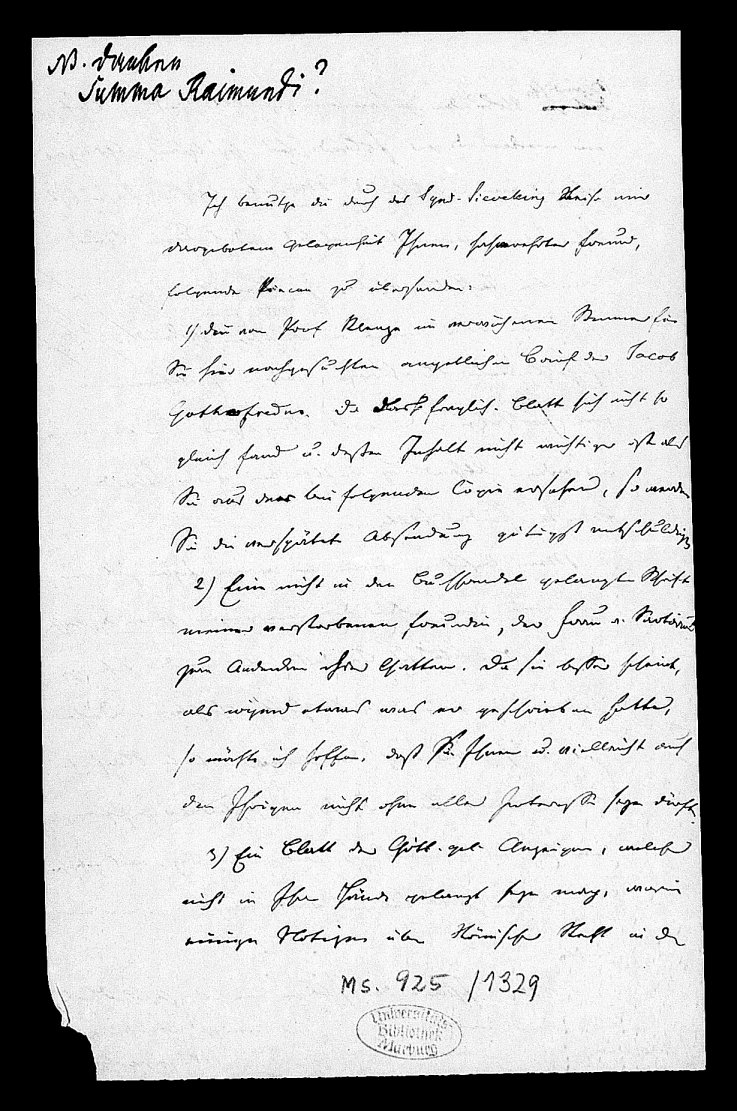 NB. danken
Summa Raimundi?
Ich benutze die durch des Synd. Sieveking Reise mir
dargebotene Gelegenheit Ihnen, hochverehrter Freund,
folgende Piecen zu übersenden:
1) den von Prof Klenze im verwichenen Sommer für
Sie hier nachgesuchten angeblichen Brief des Jacob
Gothofredus. Da das fragliche Blatt sich nicht so
gleich fand u. dessen Inhalt nicht wichtiger ist als
Sie aus der beifolgenden Copie ersehen, so werden
Sie die verspätete Absendung gütigst entschuldigen
2) Eine nicht in den Buchhandel gelangte Schrift
meiner verstorbenen Freundin, der Frau v. Sartorius
zum Andenken ihres Gatten. Da sie besser scheint,
als irgend etwas was er geschrieben hatte,
so möchte ich hoffen, daß sie Ihnen u. vielleicht auch
den Ihrigen nicht ohne alles Interesse seyn dürfte.
3) Ein Blatt der Gött. gel. Anzeigen, welches
nicht in Ihre Hände gelangt seyn mag, worin
einige Notizen über Römisches Recht in der
Ms. 925 /1329
Universitäts-
Bibliothek
Marburg